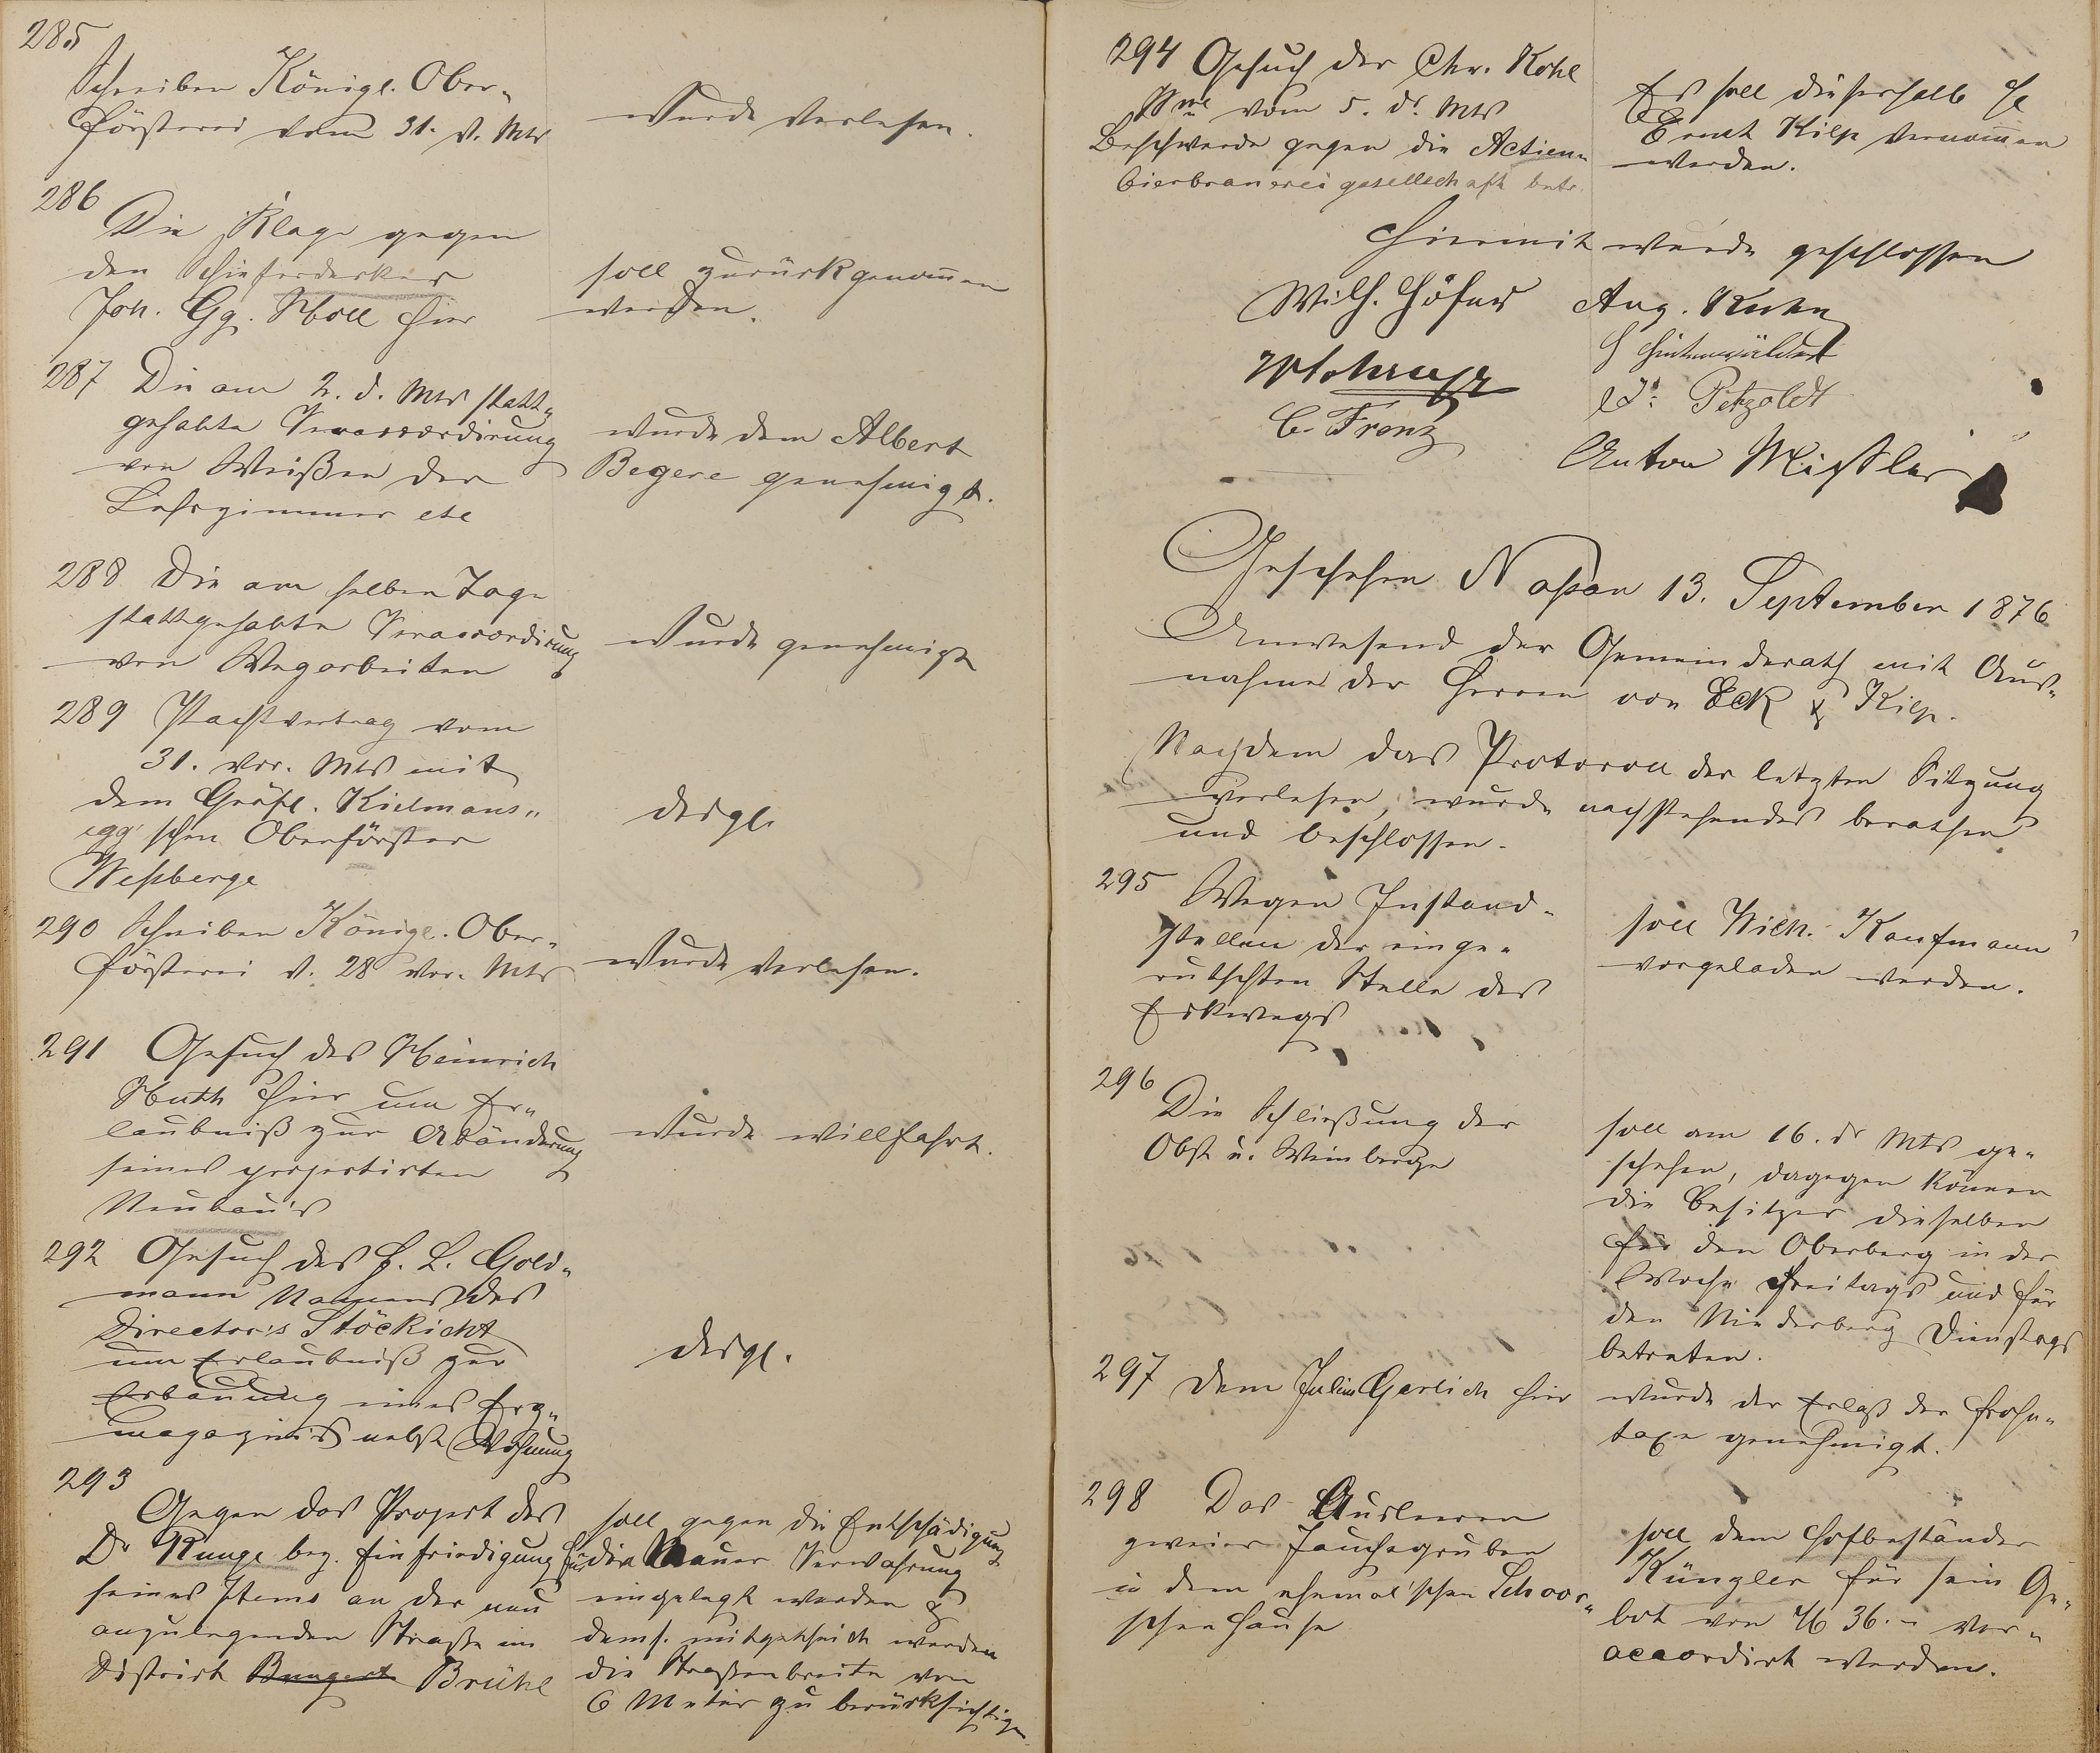 285
Schreiben Königl. Ober-
försterei vom 31. v. Mts
wurde verlesen.
286
Die Klage gegen
den Schieferdecker
Joh. Gg. Noll hier
soll zurückgenommen
werden.
287 Die am 2. d. Mts statt-
gehabte Veraccordirung
von Weißen der
Lehrzimmer etc
wurde dem Albert
Begere genehmigt.
288 Die am selben Tage
stattgehabte Veraccordirung
von Wegarbeiten
wurde genehmigt
289 Pachtvertrag vom
31. vor. Mts mit
dem Gräfl. Kielmans-
egg'schen Oberförster
Weßberge
desgl.
290 Schreiben Königl. Ober-
försterei v. 28 vor. Mts
wurde verlesen.
291 Gesuch des Heinrich
Huth hier um Er-
laubniß zur Abänderung
seines projectirten
Neubau's
wurde willfahrt.
292 Gesuch des F. L. Gold-
mann Namens des
Director's Stöckicht
um Erlaubniß zur
Erbauung eines Erz-
magazin's nebst Wohnung
desgl.
293
Gegen das Project des
Dr Runge bez. Einfriedigung
seines Items an der neu
anzulegenden Straße im
District Bungert Brühl
soll gegen die Entschädigung
für die Mauer Verwahrung
eingelegt werden &
dems. mitgetheilt werden
die Straßenbreite von
6 Meter zu berücksichtigen
294 Gesuch der Chr. Kohl
Wwe vom 5. ds. Mts
Beschwerde gegen die Actien-
bierbrauereigesellschaft betr.
Es soll dieserhalb H
Ernst Kilp vernommen
werden.
Hiermit wurde geschlossen
Wilh. Höfer Aug. Kuhn
H Hinterwälder
C. Franz
Petzoldt
Anton Mißler
Geschehen Naßau 13. September 1876
Anwesend der Gemeinderath mit Aus-
nahme der Herren von Eck & Kilp.
Nachdem das Protocoll der letzten Sitzung
verlesen, wurde nachstehendes berathen
und beschlossen.
295 Wegen Instand-
stellen der einge-
rutschten Stelle des
Eckwegs
soll Wilh. Kaufmann
vorgeladen werden.
296
Die Schließung der
Obst u. Weinberge
soll am 16. ds Mts ge-
schehen, dagegen können
die Besitzer dieselben
für den Oberberg in der
Woche Freitags und für
den Niederberg Dienstags
betreten.
297 Dem Julius Gerlich hier
wurde der Erlaß der Frohn-
taxe genehmigt.
298 Das Ausleeren
zweier Jauchegruben
in dem ehemal'schen Schoor-
schen Hause
soll dem Hofbeständer
Künzler für sein Ge-
bot von M 36.- ver-
accordirt werden.